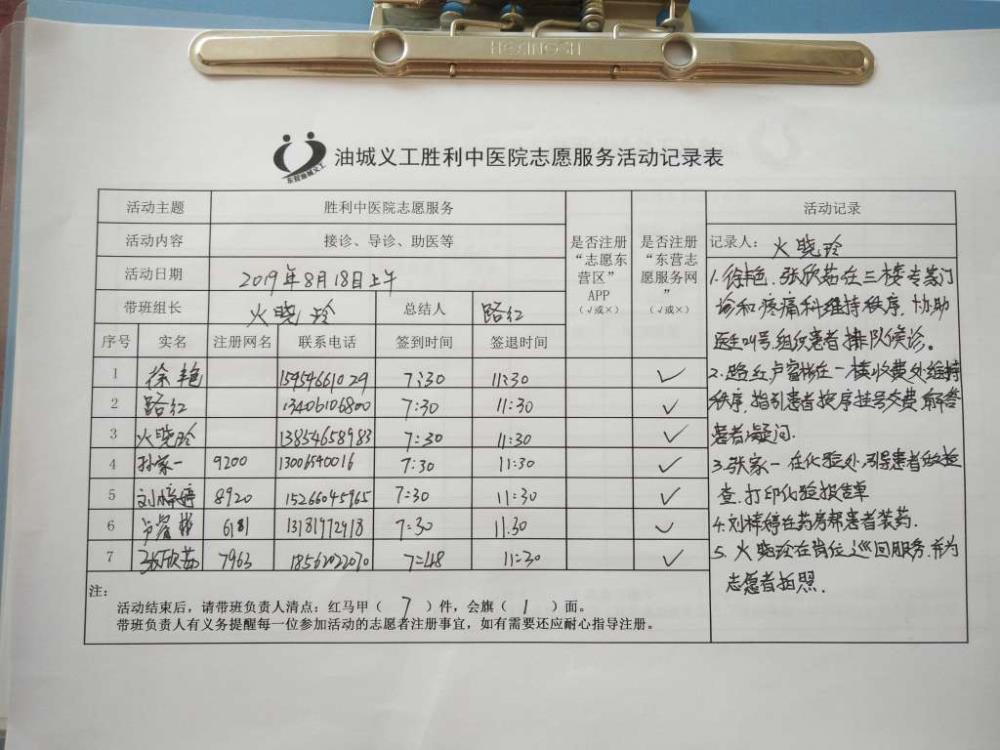 HONGSH
东营油城义工
油城义工胜利中医院志愿服务活动记录表
活动主题 胜利中医院志愿服务 活动记录
活动内容 接诊、导诊、助医等
活动日期 2019年8月18日上午
带班组长 火晓玲 总结人 路红
是否注册“志愿东营区”APP(√或×)
是否注册“东营志愿服务网”(√或×)
序号 实名 注册网名 联系电话 签到时间 签退时间
1 徐艳 15954661029 7:30 11:30 √
2 路红 13406106800 7:30 11:30 √
3 火晓玲 13854658983 7:30 11:30 √
4 孙家一 9200 13006540016 7:30 11:30 √
5 刘婷婷 8920 15266045965 7:30 11:30 √
6 卢富彬 6181 13181772918 7:30 11:30 √
7 张欣茹 7963 18562022070 7:48 11:30 √
注:
活动结束后,请带班负责人清点:红马甲( 7 )件,会旗( 1 )面。
带班负责人有义务提醒每一位参加活动的志愿者注册事宜,如有需要还应耐心指导注册。
记录人: 火晓玲
1.徐艳、张欣茹在三楼专家门
诊和疼痛科维持秩序,协助
医生叫号,组织患者排队候诊。
2.路红卢富彬在一楼收费处维持
秩序,指引患者按序挂号交费,解答
患者疑问.
3.张家一在化验处,引导患者做检
查.打印化验报告单
4.刘婷婷在药房帮患者装药.
5.火晓玲在岗位巡回服务,并为
志愿者拍照.